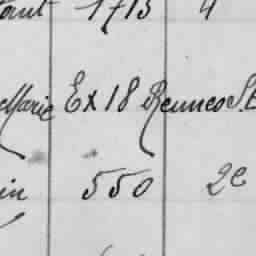 1713 4
Marie Ex 18 Rennes S.E
in 550 2e